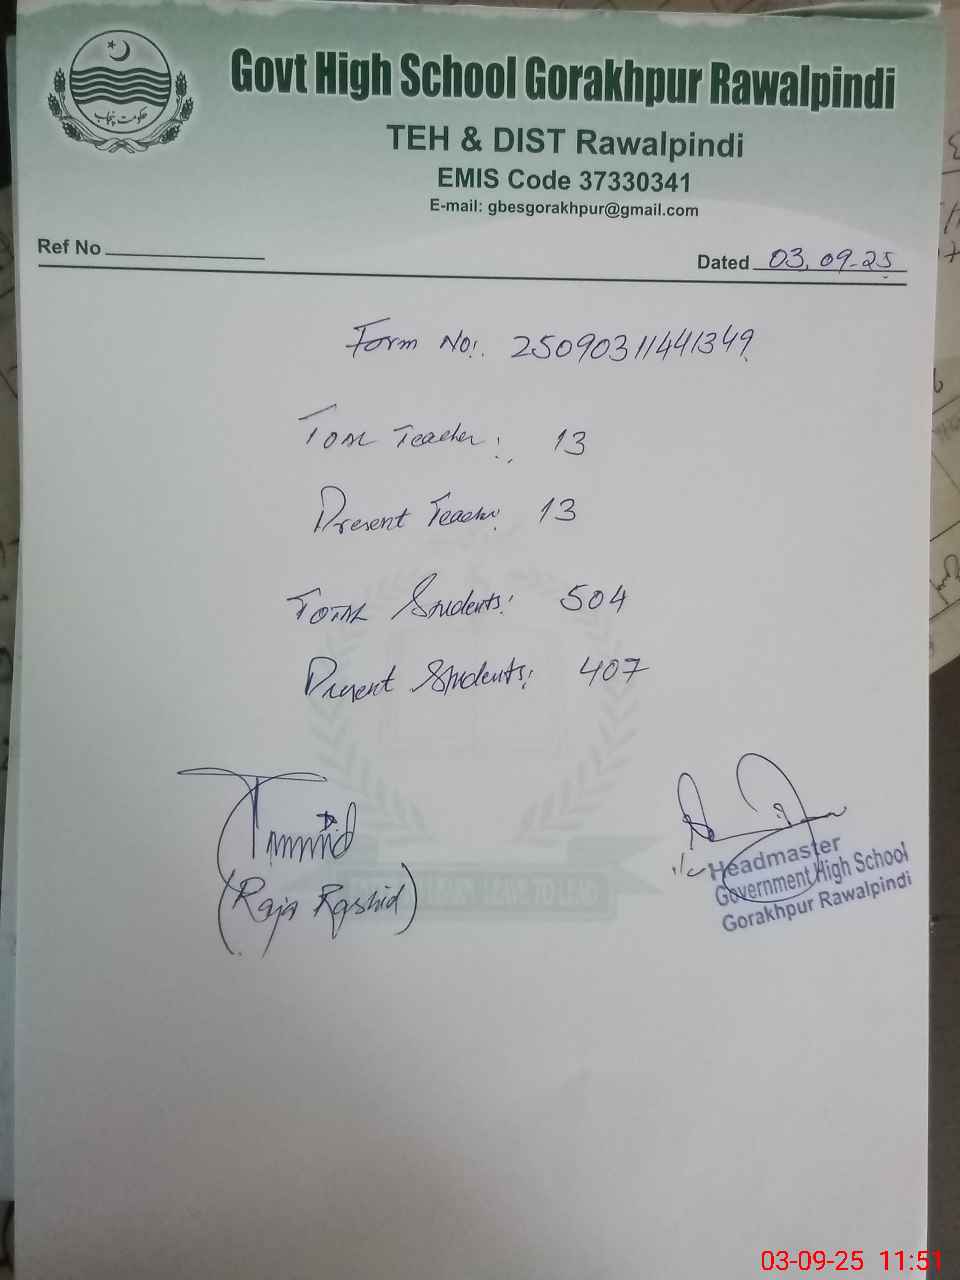 حکومت پنجاب
Govt High School Gorakhpur Rawalpindi
TEH & DIST Rawalpindi
EMIS Code 37330341
E-mail: gbesgorakhpur@gmail.com
Ref No
Dated 03.09-25
Form No: 25090311441349
Total Teacher: 13
Present Teacher: 13
Total Students: 504
Present Students: 407
(Raja Rashid)
i/c Headmaster
Government High School
Gorakhpur Rawalpindi
03-09-25 11:51